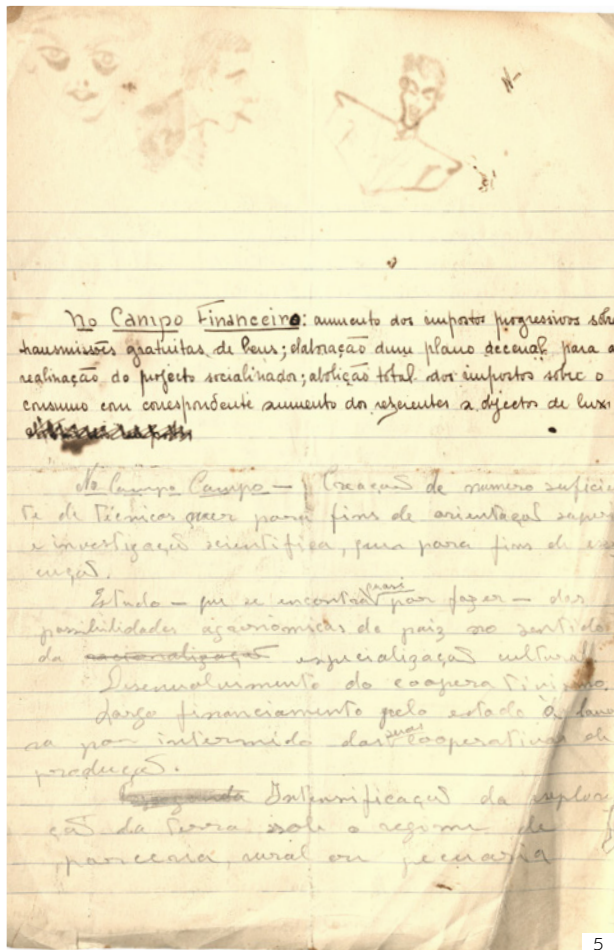 No Campo Financeiro: aumento dos impostos progressivos sobre
transmissões gratuitas de bens; elaboração dum plano decenal para a
realização do projecto socialisador; abolição total dos impostos sobre o
consumo com correspondente aumento dos referentes a objectos de luxo
No Campo Campo — Creaçaõ de número suficie
te de Técnicos quer para fins de orientaçaõ super
e investigaçaõ scientifica, quer para fins de exe
cuçaõ.
Estudo — que se encontra quasi por fazer — das
possibilidades agrònomicas do paiz no sentido
da racionalizaçaõ especializaçaõ cultural
Desenvolvimento do cooperativismo.
Largo financiamento pelo estado à lavou
ra por intermedio das suas cooperativas de
produçaõ.
Intensificaçaõ da explor
çaõ da terra sob o regime de
parceria, rural ou pecuaria
5